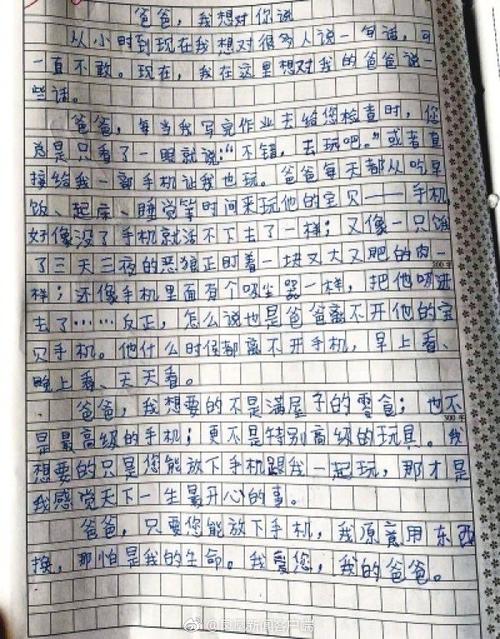 爸爸，我想对你说
从小时到现在我想对很多人说一句话，可
一直不敢。现在，我在这里想对我的爸爸说一
些话。
爸爸，每当我写完作业去给您检查时，您
总是只看了一眼就说：“不错，去玩吧。”或者直
接给我一部手机让我也玩。爸爸每天都从吃早
饭、起床、睡觉等时间来玩他的宝贝——手机
好像没了手机就活不下去了一样；又像一只饿
了三天三夜的恶狼正盯着一块又大又肥的肉一
样；还像手机里面有个吸尘器一样，把他吸进
去了……反正，怎么说也是爸爸离不开他的宝
贝手机。他什么时候都离不开手机，早上看、
晚上看、天天看。
爸爸，我想要的不是满屋子的零食；也不
是最高级的手机；更不是特别高级的玩具。我
想要的只是您能放下手机跟我一起玩，那才是
我感觉天下一生最开心的事。
爸爸，只要您能放下手机，我原意用东西
换，那怕是我的生命。我爱您，我的爸爸。
300字
500字